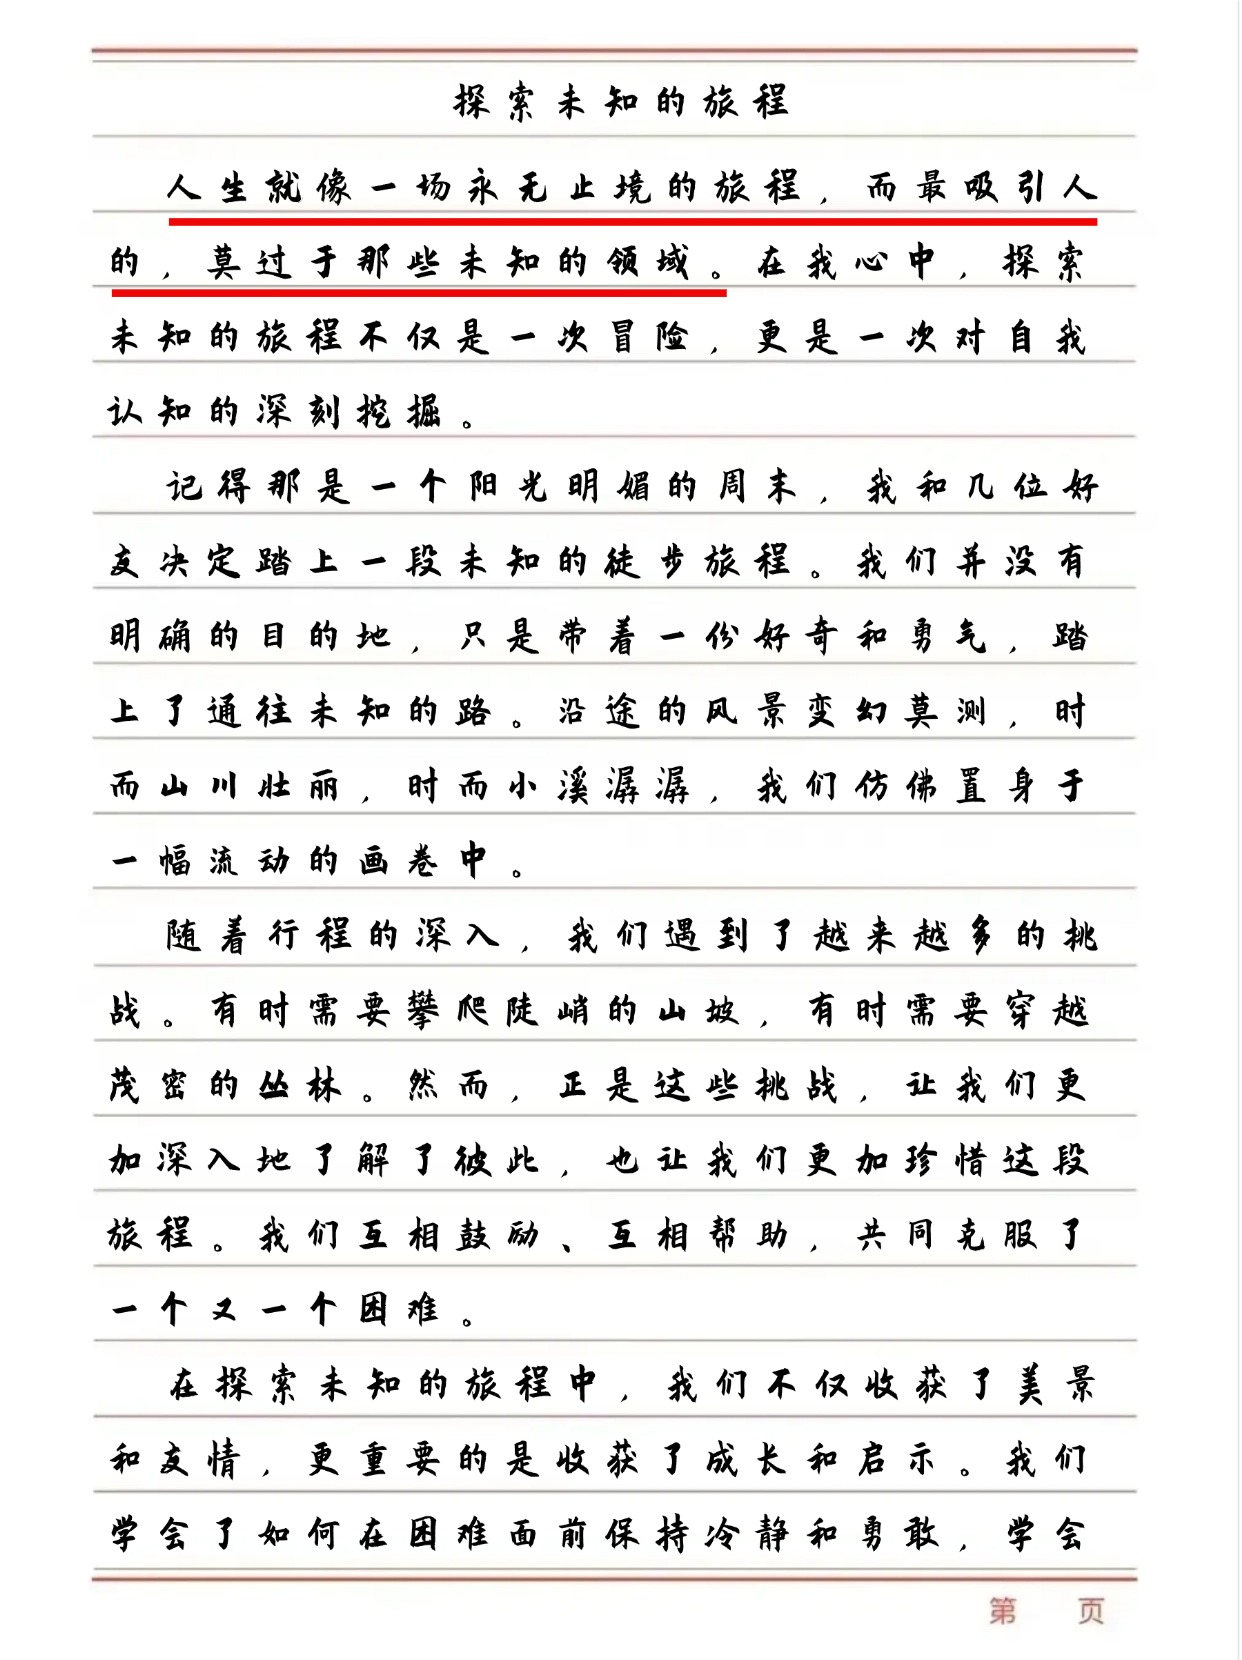 探索未知的旅程
人生就像一场永无止境的旅程，而最吸引人
的，莫过于那些未知的领域。在我心中，探索
未知的旅程不仅是一次冒险，更是一次对自我
认知的深刻挖掘。
记得那是一个阳光明媚的周末，我和几位好
友决定踏上一段未知的徒步旅程。我们并没有
明确的目的地，只是带着一份好奇和勇气，踏
上了通往未知的路。沿途的风景变幻莫测，时
而山川壮丽，时而小溪潺潺，我们仿佛置身于
一幅流动的画卷中。
随着行程的深入，我们遇到了越来越多的挑
战。有时需要攀爬陡峭的山坡，有时需要穿越
茂密的丛林。然而，正是这些挑战，让我们更
加深入地了解了彼此，也让我们更加珍惜这段
旅程。我们互相鼓励、互相帮助，共同克服了
一个又一个困难。
在探索未知的旅程中，我们不仅收获了美景
和友情，更重要的是收获了成长和启示。我们
学会了如何在困难面前保持冷静和勇敢，学会
第 页